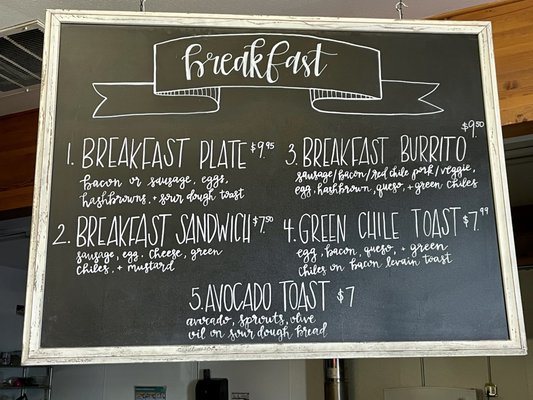 breakfast
1. BREAKFAST PLATE $9.95
bacon or sausage, eggs,
hashbrowns, + sour dough toast
2. BREAKFAST SANDWICH $7.50
sausage, egg, cheese, green
chiles, + mustard
3. BREAKFAST BURRITO $9.50
sausage/bacon/red chile pork/veggie,
egg, hashbrown, queso, + green chiles
4. GREEN CHILE TOAST $7.99
egg, bacon, queso, + green
chiles on bacon levain toast
5. AVOCADO TOAST $7
avocado, sprouts, olive
oil on sour dough bread